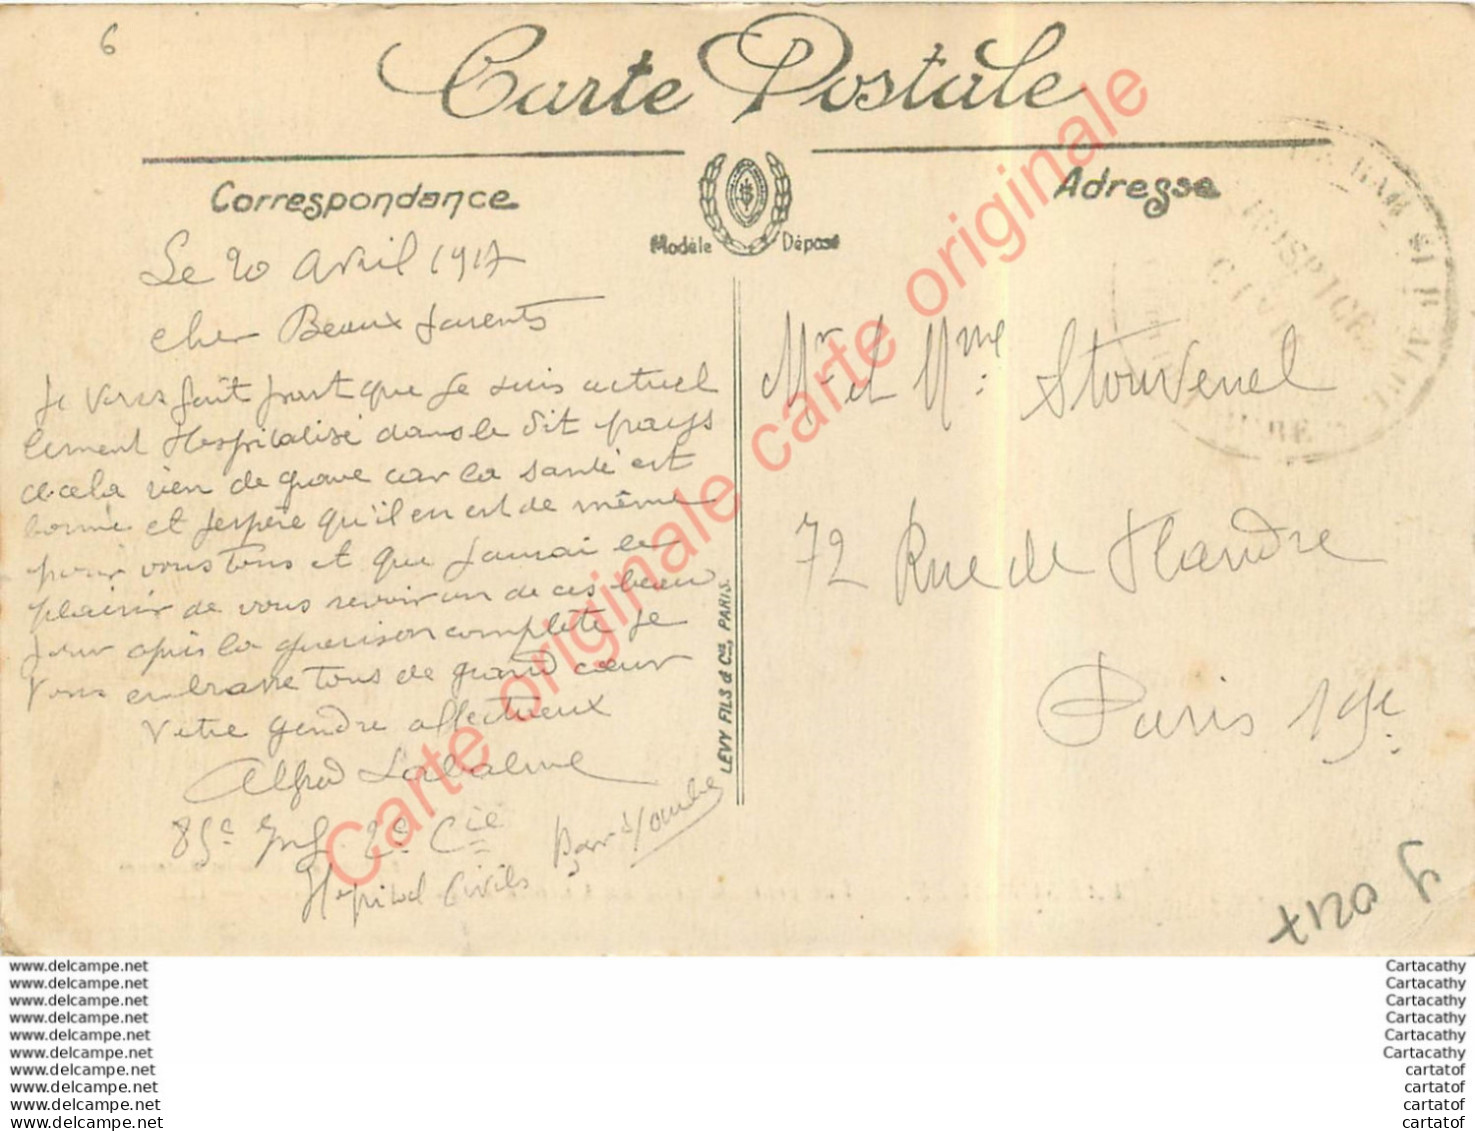 6
Carte Postale
Correspondance
Adresse
Modèle Déposé
Le 20 Avril 1917
cher Beaux parents
Je vous fait part que je suis actuel
lement Hospitalisé dans le dit pays
de cela rien de grave car la santé est
bonne et j'espère qu'il en est de même
pour vous tous et que j'aurai le
plaisir de vous revoir un de ces beau
jour après la guerison complète je
vous embrasse tous de grand cœur
Votre gendre affectueux
Alfred Labalme
85e Inf. 2e Cie
Hopital Civils Bar s/ Aube
LEVY FILS & Cie, PARIS.
Mr et Mme Stouvenel
72 Rue de Flandre
Paris 19e
HOSPICE
CIVIL
Carte originale carte originale
www.delcampe.net
www.delcampe.net
www.delcampe.net
www.delcampe.net
www.delcampe.net
www.delcampe.net
www.delcampe.net
www.delcampe.net
www.delcampe.net
www.delcampe.net
Cartacathy
Cartacathy
Cartacathy
Cartacathy
Cartacathy
Cartacathy
cartatof
cartatof
cartatof
cartatof